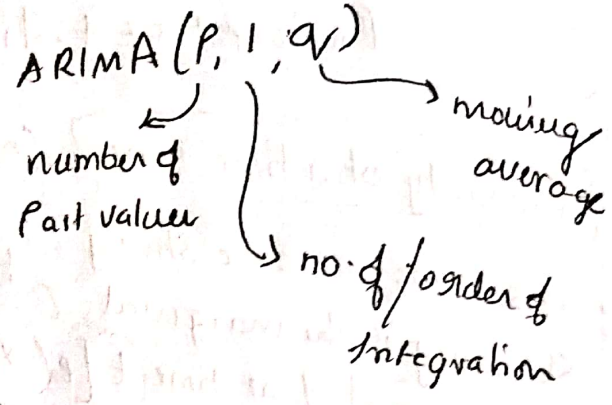 ARIMA (P, 1, q)
number of
Past values
moving
average
no. of / order of
Integration